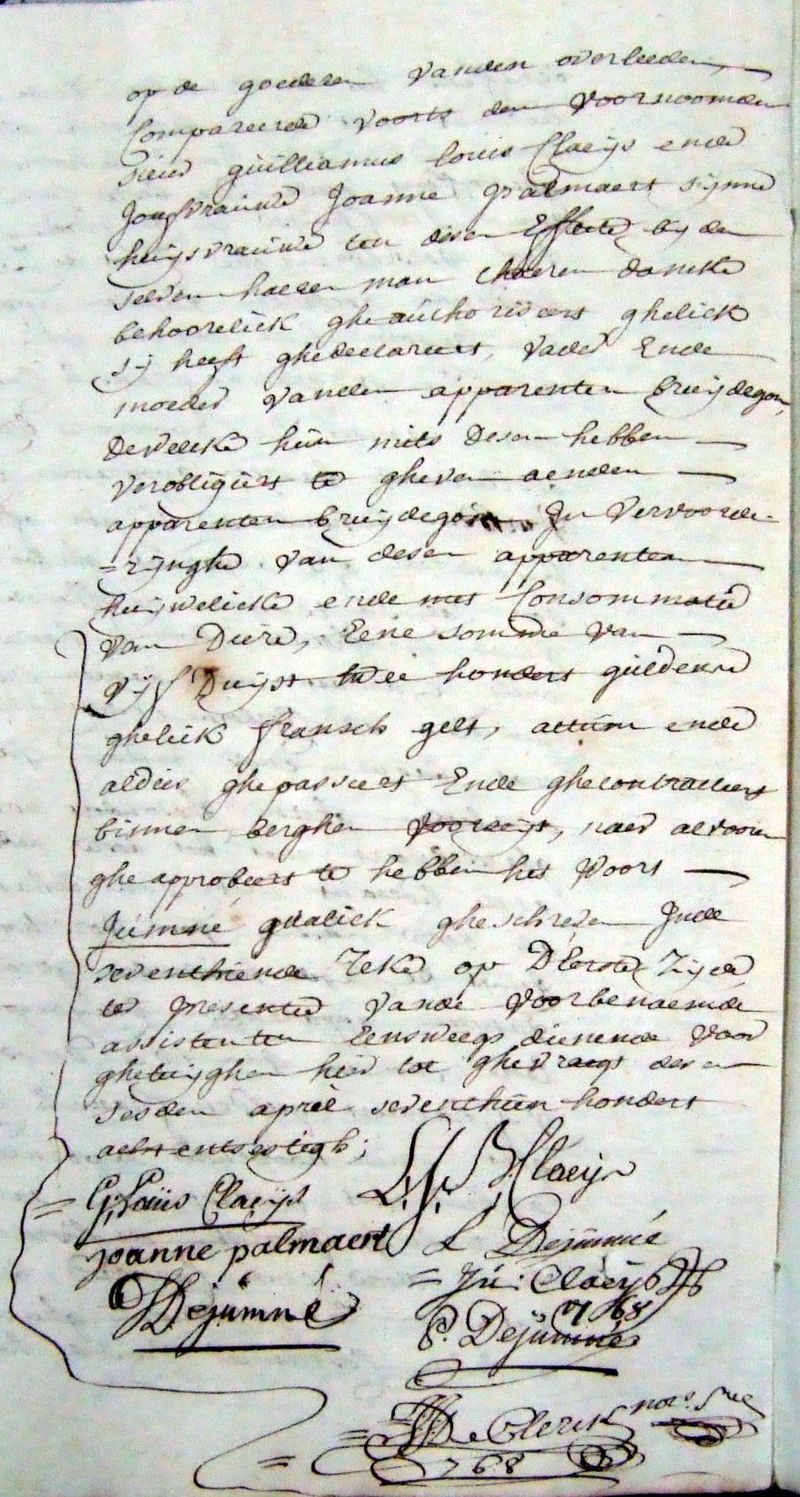 op de goederen vanden overleeden,
Compareerde voorts den voornoomden
sieur guilliamus louis Claeijs ende
Jouffrauwe Joanne palmaert sijnne
huijsvrauwe ten desen Effecte bij den
selven haeren man t'haeren dancke
behoorelick gheauthoriseert ghelick
sij heeft ghedeclareert, vader Ende
moeder vanden apparenten bruijdegom,
dewelcke hun mits desen hebben
verobligiert te gheven aenden
apparenten bruijdegom In vervoorde-
=rijnghe van desen apparenten
huijwelicke ende met Consommatie
van Diere, Eene somme van
vijf Duijst twee hondert guldens
ghelick fransch gelt, actum ende
aldus ghepasseert Ende ghecontracteert
binnen berghen voorseijt, naer alvooren
gheapprobeert te hebben het woort
Jümné qualick gheschreven Inde
seventhiende reke op D'eerste zijde
ter presentie vande voorbenaemde
assistenten Eensweegs dienende voor
ghetuijghen hier toe ghevraegt desen
sesden april seventhien hondert
achtentsestigh;
= G: Louis Claeijs B Claeijs
joanne palmaert L Dejümné
= Ju: Claeijs 1768
Dejümné P. Dejümné
De Clerck nots
1768